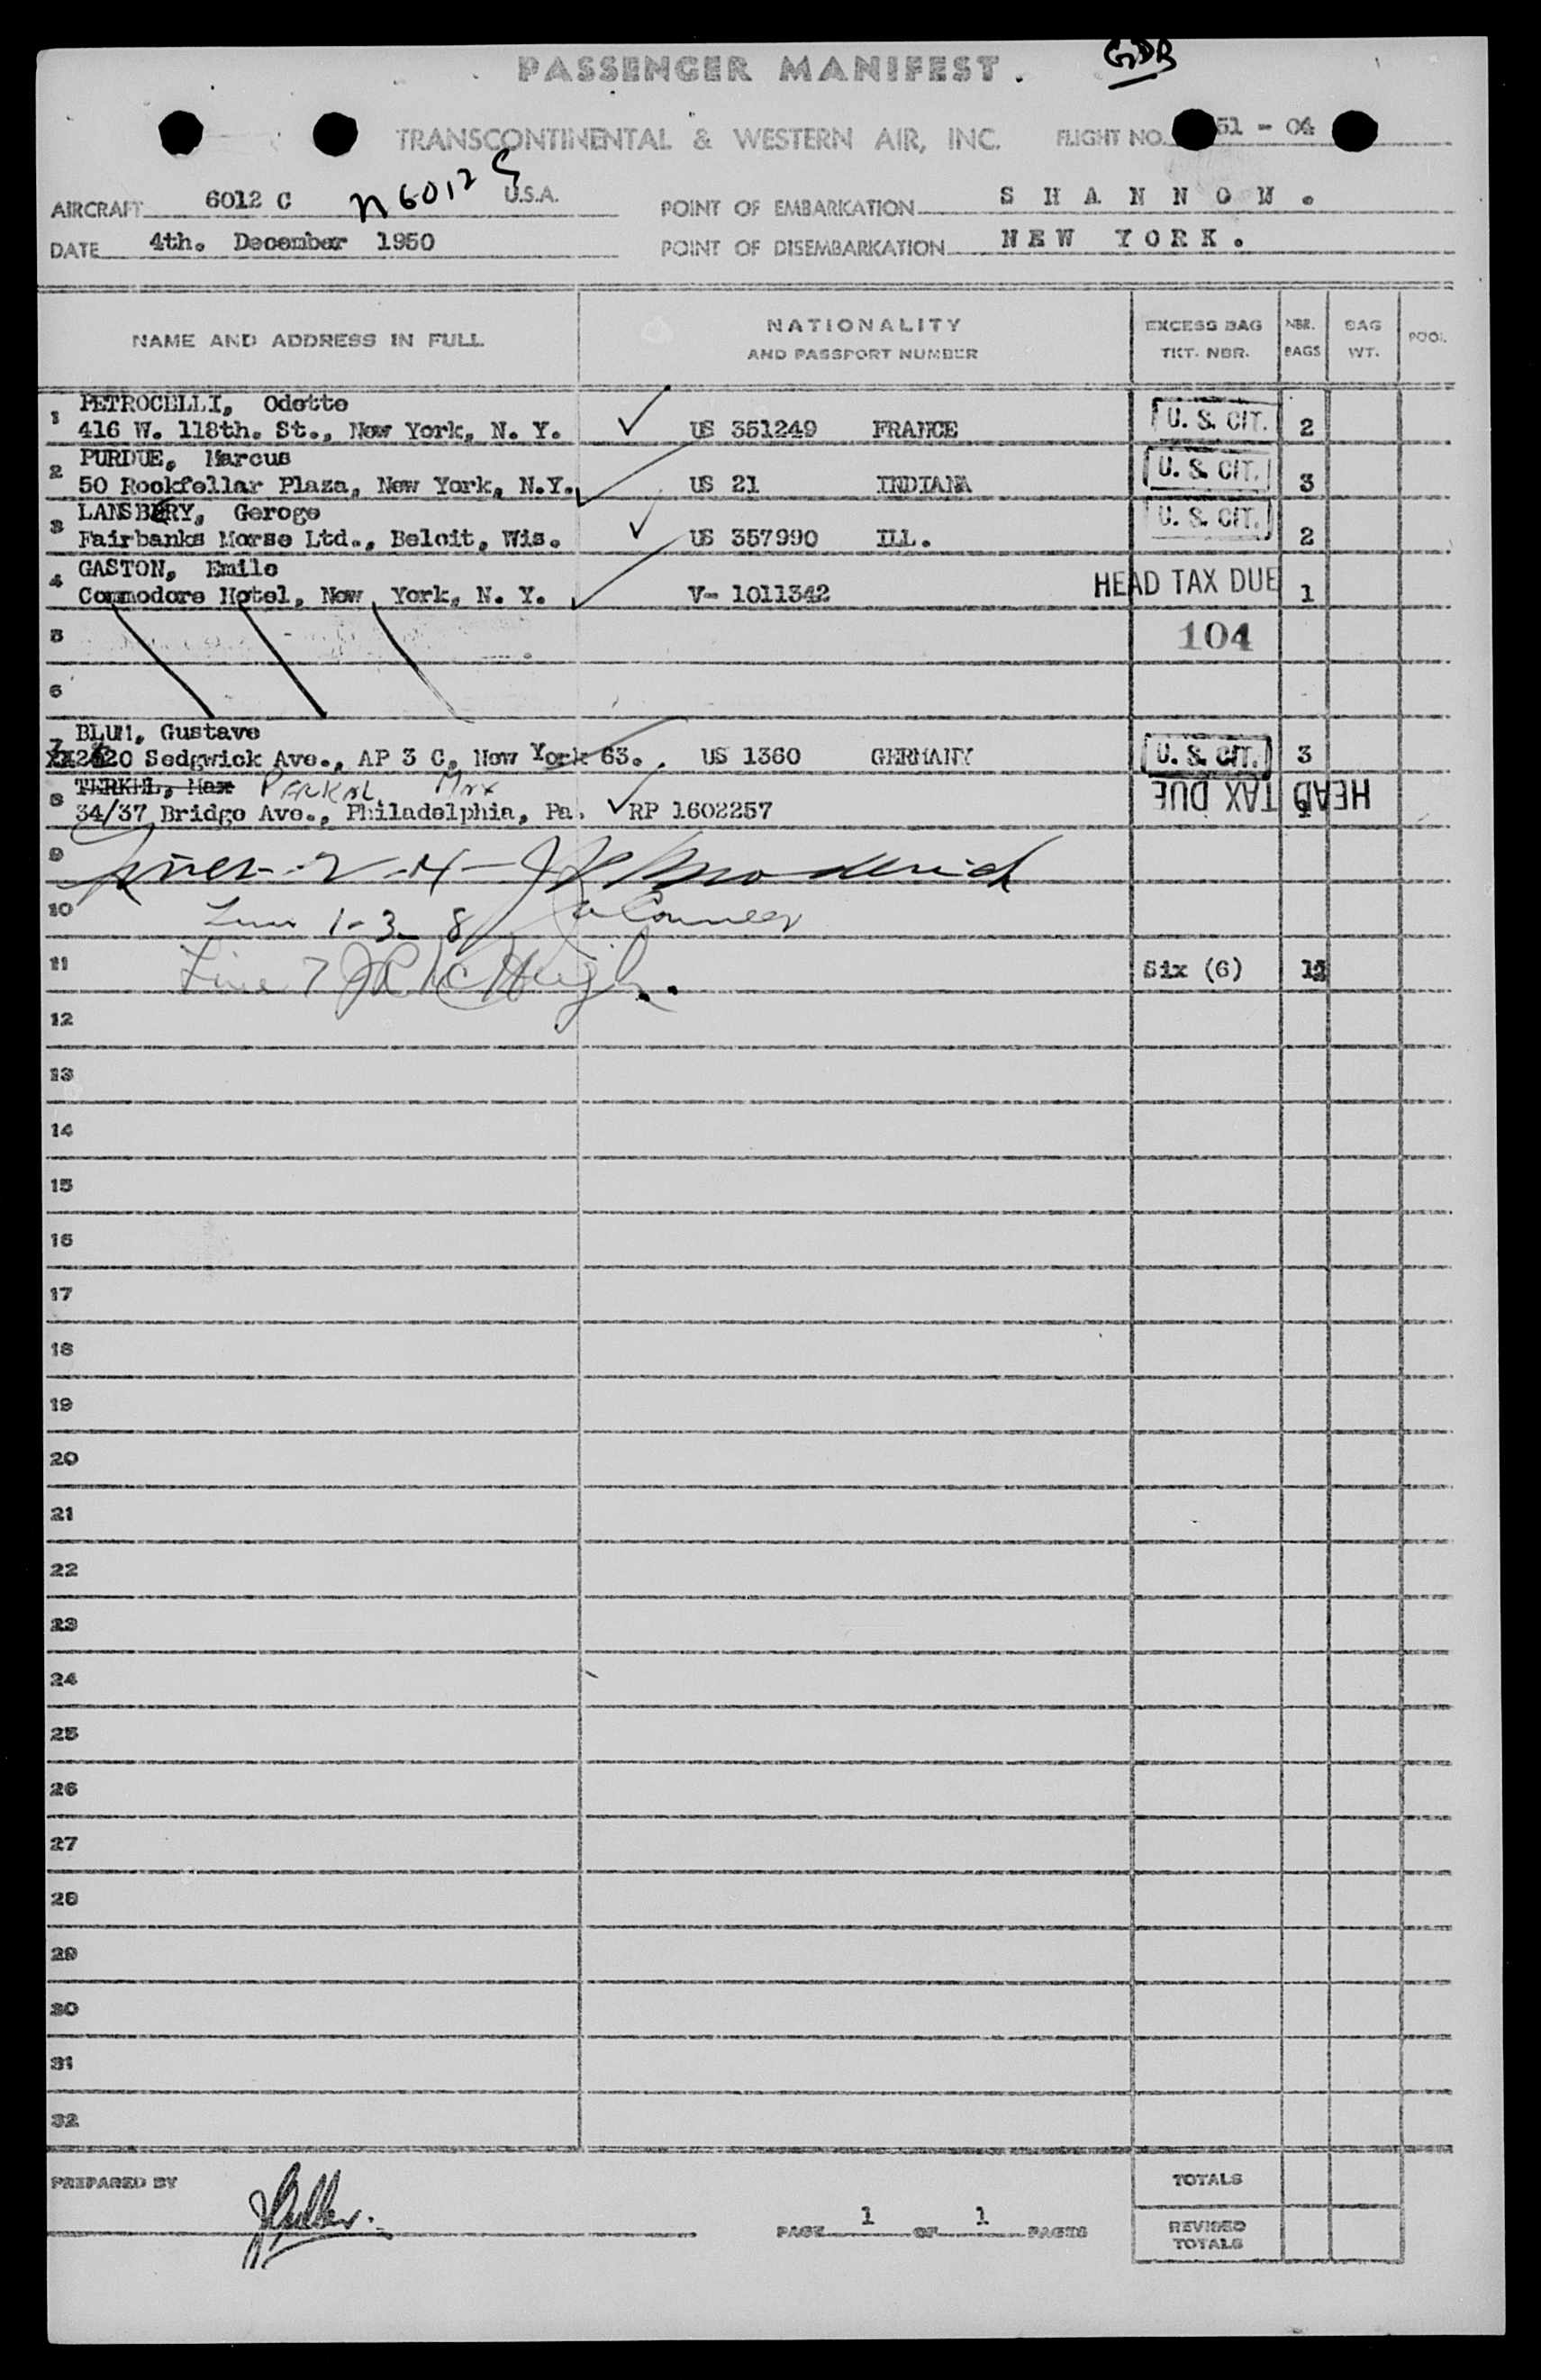 GDB
PASSENGER MANIFEST.
TRANSCONTINENTAL & WESTERN AIR, INC. FLIGHT NO. 51 - 04
AIRCRAFT 6012 C N6012C U.S.A. POINT OF EMBARKATION S H A N N O N .
DATE 4th. December 1950 POINT OF DISEMBARKATION N E W Y O R K .
NAME AND ADDRESS IN FULL NATIONALITY AND PASSPORT NUMBER EXCESS BAG TKT. NBR. NBR. BAGS BAG WT. POOL
1 PETROCELLI, Odette
416 W. 118th. St., New York, N. Y. US 351249 FRANCE U. S. CIT. 2
2 PURDUE, Marcus
50 Rockfellar Plaza, New York, N.Y. US 21 INDIANA U. S. CIT. 3
3 LANSBERY, Geroge
Fairbanks Morse Ltd., Beloit, Wis. US 357990 ILL. U. S. CIT. 2
4 GASTON, Emile
Commodore Hotel, New York, N. Y. V- 1011342 HEAD TAX DUE 1
5 104
6
7 BLUM, Gustave
2620 Sedgwick Ave., AP 3 C, New York 63. US 1360 GERMANY U. S. CIT. 3
8 TERKEL, Max PERKAL, MAX
34/37 Bridge Ave., Philadelphia, Pa. RP 1602257 HEAD TAX DUE
9 Lines - 2 - 4 - Broderick
10 Lines 1-3-8
11 Line 7 McHugh Six (6)
12
13
14
15
16
17
18
19
20
21
22
23
24
25
26
27
28
29
30
31
32
PREPARED BY TOTALS
PAGE 1 OF 1 PAGES REVISED TOTALS